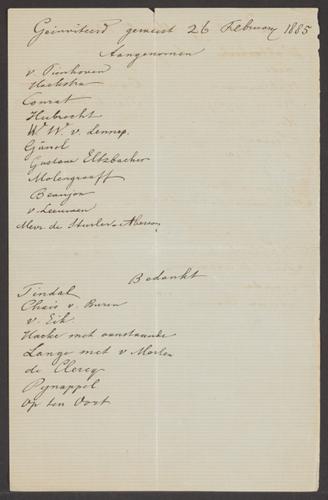 Geïnviteerd geweest 26 February 1885
Aangenomen
v. Tienhoven
Hoekstra
Conrat
Hubrecht
W. W. v. Lennep.
Günst
Gustave Eltzbacher
Molengraaff
Beaujon
v. Leeuwen
Mevr. de Sturler
Bedankt
Tindal
Chais v. Buren
v. Eik
Hacke met aanstaande
Lange met v Marken
de Clercq
Pijnappel
Op ten Oort